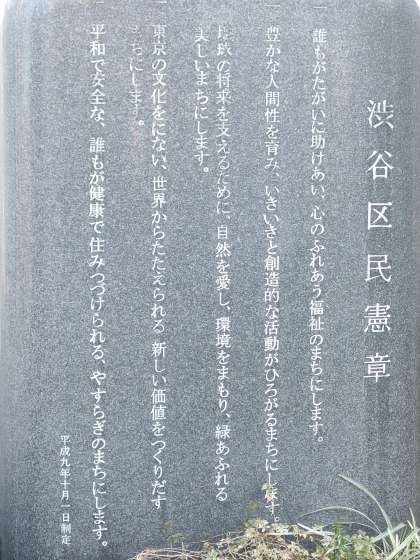 渋谷区民憲章
一 誰もがたがいに助けあい、心のふれあう福祉のまちにします。
一 豊かな人間性を育み、いきいきと創造的な活動がひろがるまちにします。
一 地球の将来を支えるために、自然を愛し、環境をまもり、緑あふれる
美しいまちにします。
一 東京の文化をにない、世界からたたえられる 新しい価値をつくりだす
まちにします。
一 平和で安全な、誰もが健康で住みつづけられる、やすらぎのまちにします。
平成九年十月一日制定